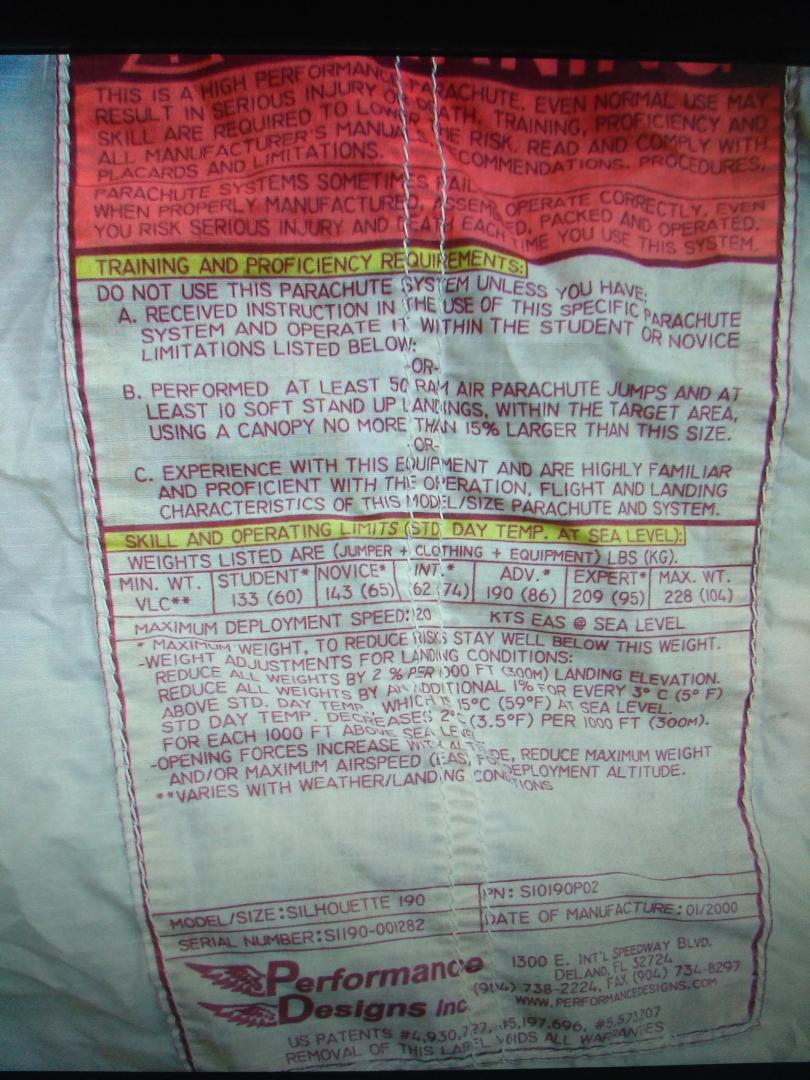 THIS IS A HIGH PERFORMANCE PARACHUTE. EVEN NORMAL USE MAY
RESULT IN SERIOUS INJURY OR DEATH. TRAINING, PROFICIENCY AND
SKILL ARE REQUIRED TO LOWER THE RISK. READ AND COMPLY WITH
ALL MANUFACTURER'S MANUALS, RECOMMENDATIONS, PROCEDURES,
PLACARDS AND LIMITATIONS.
PARACHUTE SYSTEMS SOMETIMES FAIL TO OPERATE CORRECTLY, EVEN
WHEN PROPERLY MANUFACTURED, ASSEMBLED, PACKED AND OPERATED.
YOU RISK SERIOUS INJURY AND DEATH EACH TIME YOU USE THIS SYSTEM.
TRAINING AND PROFICIENCY REQUIREMENTS:
DO NOT USE THIS PARACHUTE SYSTEM UNLESS YOU HAVE:
A. RECEIVED INSTRUCTION IN THE USE OF THIS SPECIFIC PARACHUTE
SYSTEM AND OPERATE IT WITHIN THE STUDENT OR NOVICE
LIMITATIONS LISTED BELOW:
-OR-
B. PERFORMED AT LEAST 50 RAM AIR PARACHUTE JUMPS AND AT
LEAST 10 SOFT STAND UP LANDINGS, WITHIN THE TARGET AREA,
USING A CANOPY NO MORE THAN 15% LARGER THAN THIS SIZE.
-OR-
C. EXPERIENCE WITH THIS EQUIPMENT AND ARE HIGHLY FAMILIAR
AND PROFICIENT WITH THE OPERATION, FLIGHT AND LANDING
CHARACTERISTICS OF THIS MODEL/SIZE PARACHUTE AND SYSTEM.
SKILL AND OPERATING LIMITS (STD. DAY TEMP. AT SEA LEVEL):
WEIGHTS LISTED ARE (JUMPER + CLOTHING + EQUIPMENT) LBS (KG).
MIN. WT. STUDENT* NOVICE* INT.* ADV.* EXPERT* MAX. WT.
VLC** 133 (60) 143 (65) 62 (74) 190 (86) 209 (95) 228 (104)
MAXIMUM DEPLOYMENT SPEED: 120 KTS EAS @ SEA LEVEL
* MAXIMUM WEIGHT, TO REDUCE RISKS STAY WELL BELOW THIS WEIGHT.
-WEIGHT ADJUSTMENTS FOR LANDING CONDITIONS:
REDUCE ALL WEIGHTS BY 2 % PER 1000 FT (300M) LANDING ELEVATION.
REDUCE ALL WEIGHTS BY AN ADDITIONAL 1% FOR EVERY 3° C (5° F)
ABOVE STD. DAY TEMP. WHICH IS 15°C (59°F) AT SEA LEVEL.
STD DAY TEMP. DECREASES 2°C (3.5°F) PER 1000 FT (300M).
FOR EACH 1000 FT ABOVE SEA LEVEL
-OPENING FORCES INCREASE WITH ALTITUDE, REDUCE MAXIMUM WEIGHT
AND/OR MAXIMUM AIRSPEED (EAS) FOR DEPLOYMENT ALTITUDE.
**VARIES WITH WEATHER/LANDING CONDITIONS
MODEL/SIZE: SILHOUETTE 190 PN: SI0190P02
SERIAL NUMBER: SI190-001282 DATE OF MANUFACTURE: 01/2000
Performance
Designs Inc
1300 E. INT'L SPEEDWAY BLVD.
DELAND, FL 32724
(904) 738-2224, FAX (904) 734-8297
WWW.PERFORMANCEDESIGNS.COM
US PATENTS #4,930,727, #5,197,696, #5,573,207
REMOVAL OF THIS LABEL VOIDS ALL WARRANTIES